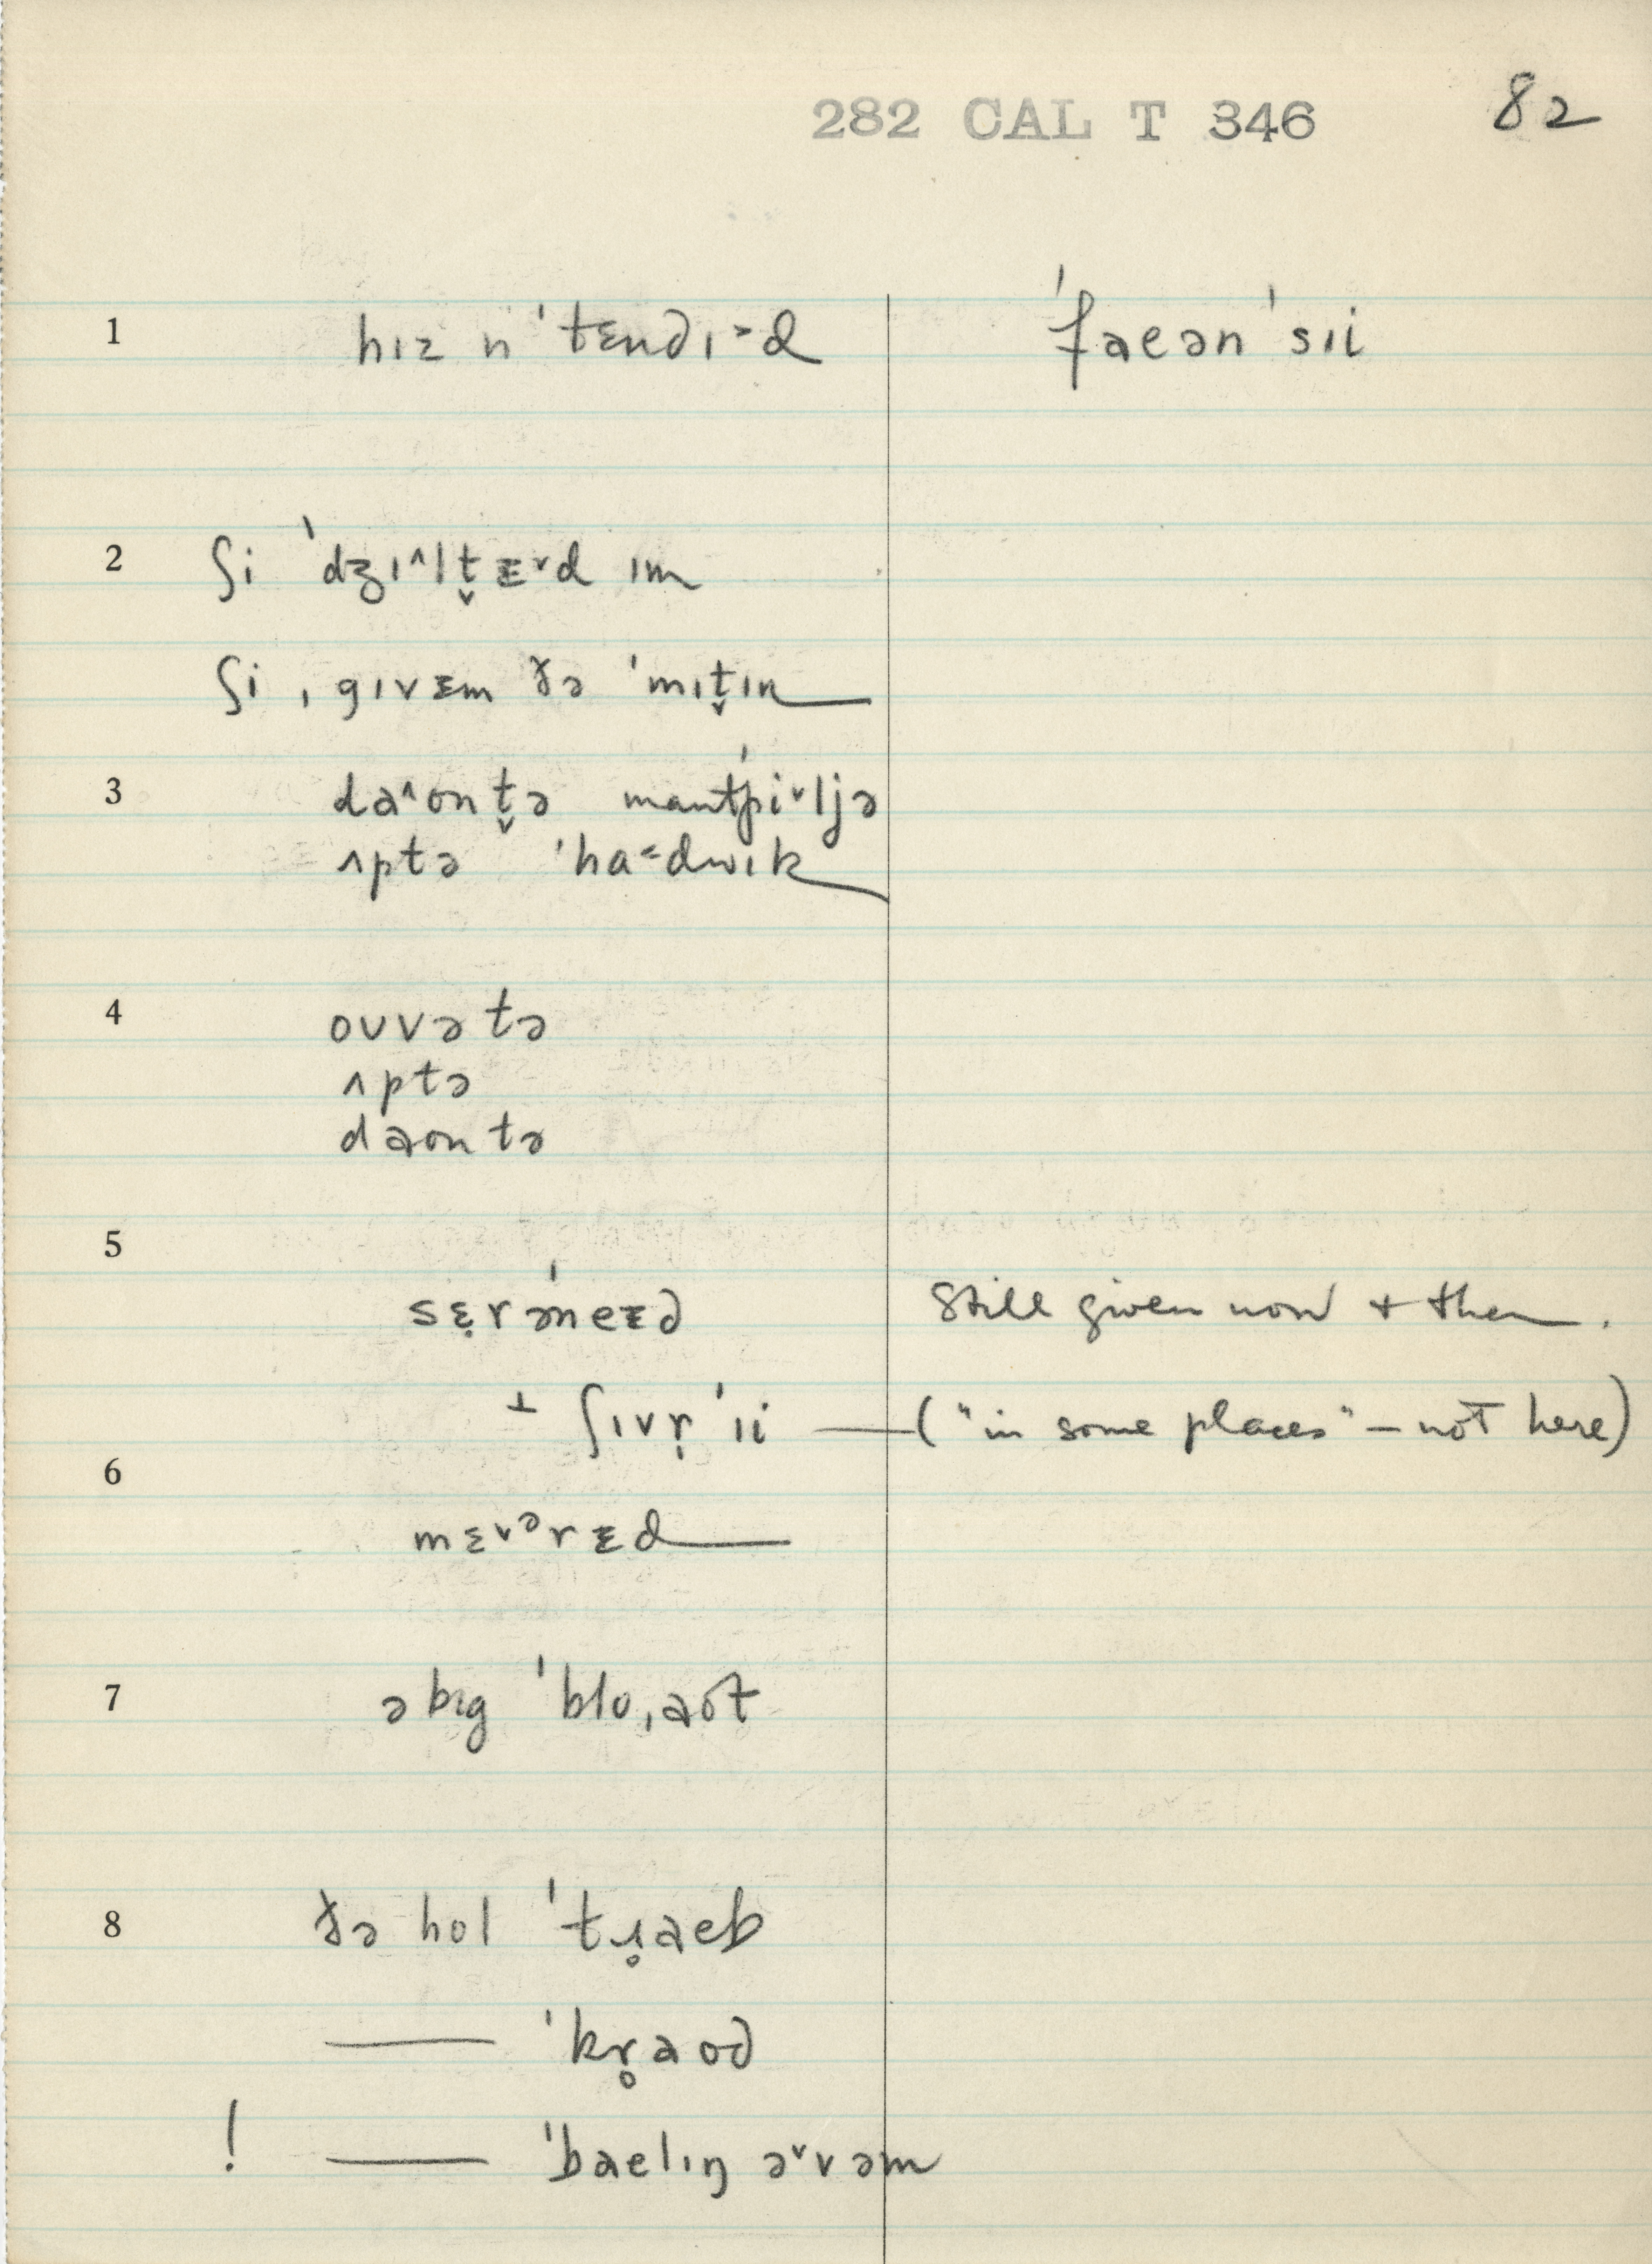 282 CAL T 346 82
1 hɪz n ˈtɛndɪ˃d ˈfaeənˈsɪi
2 ʃi ˈdʒɪ˄lt̬ᵻ˅d ɪm
ʃi ˌgɪvᵻm ðə ˈmɪt̬ɪn
3 da˄ʊn t̬ə mantˈpi˅ljə
ʌptə ˈha˂dwɪk
4 oʊvə tə
ʌptə
daʊn tə
5
sɛ̣rəˈneᵻd Still given now + then.
+ ʃɪvṛˈɪi — ("in some places" – not here)
6
mɛ˅ᵊrᵻd
7 ə bɪg ˈbloˌaʊt
8 ðə hol ˈtɹ̥aeb
— ˈkr̥aʊd
! — ˈbaelɪŋ ə˅vəm